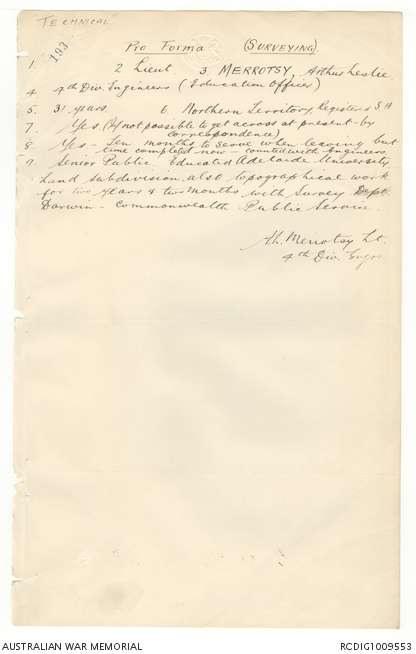 "TECHNICAL"
193
Pro Forma (SURVEYING)
1. 2 Lieut. 3 MERROTSY, Arthur Leslie
4. 4th Div. Engineers (Education Officer)
5. 31 years. 6. Northern Territory, Registered S A
7. Yes. (If not possible to get across at present - by
correspondence)
8. Yes - Ten months to serve when leaving but
time completed now - counted with Engineers
9. Senior Public. Educated Adelaide University
Land subdivision also topographical work
for two years & two months with Survey Dept.
Darwin - Commonwealth Public Service
A.L. Merrotsy Lt.
4th Div. Engrs
AUSTRALIAN WAR MEMORIAL
RCDIG1009553